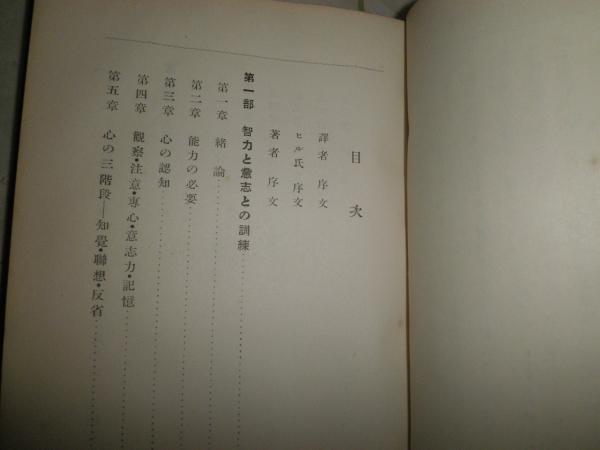 目次
譯者序文
ヒル氏序文
著者序文
第一部 智力と意志との訓練
第一章 緒論
第二章 能力の必要
第三章 心の認知
第四章 觀察・注意・專心・意志力・記憶
第五章 心の三階段──知覺・聯想・反省